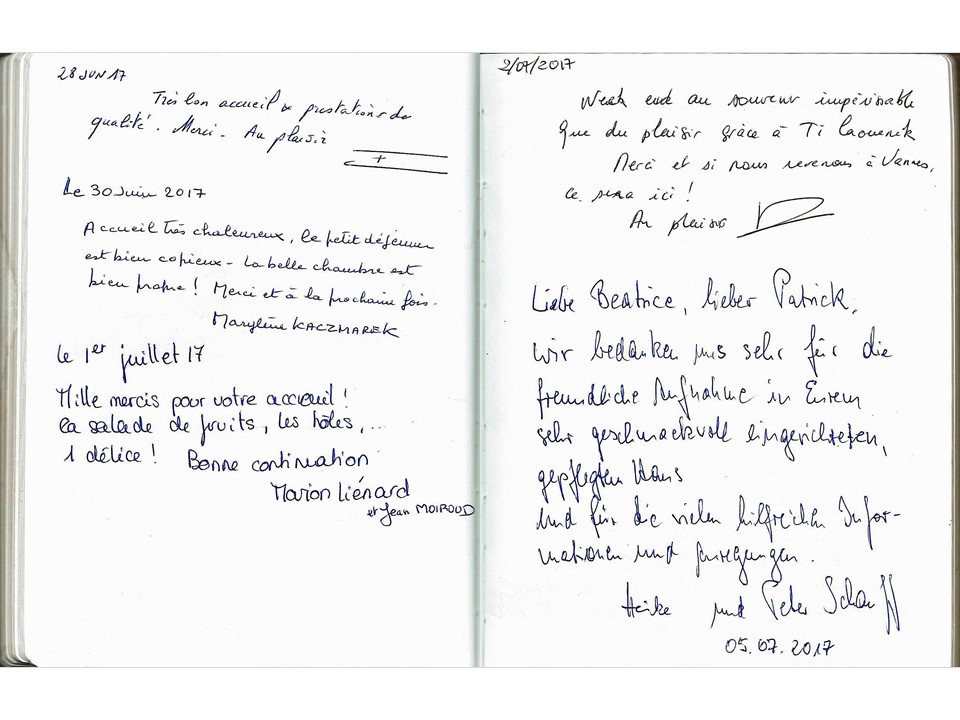 28 JUN 17
Très bon accueil & prestations de
qualité. Merci - Au plaisir
Le 30 Juin 2017
Accueil très chaleureux, le petit déjeuner
est bien copieux - La belle chambre est
bien propre ! Merci et à la prochaine fois -
Marylène KACZMAREK
Le 1er juillet 17
Mille mercis pour votre accueil !
La salade de fruits, les hôtes,...
1 délice ! Bonne continuation
Marion Liénard
et Jean MOIROUD
2/07/2017
Week end au souvenir impérissable
Que du plaisir grâce à Ti Laouenik
Merci et si nous revenons à Vannes,
ce sera ici !
Au plaisir
Liebe Beatrice, lieber Patrick,
wir bedanken uns sehr für die
freundliche Aufnahme in Eurem
sehr geschmackvoll eingerichteten,
gepflegten Haus
und für die vielen hilfreichen Infor-
mationen und Anregungen.
Heike und Peter Schauff
05.07.2017